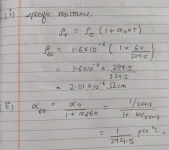 (i) specific resistance.
ρ_T = ρ_0 (1 + α_0 × T)
ρ_60 = 1.6×10^-6 (1 + 60/234.5)
= 1.6×10^-6 × 294.5/234.5
= 2.01×10^-6 Ωcm
ii) α_60 = α_0/(1+α_0 60) = (1/234.5)/(1+ 60/234.5)
= 1/294.5 per °C.